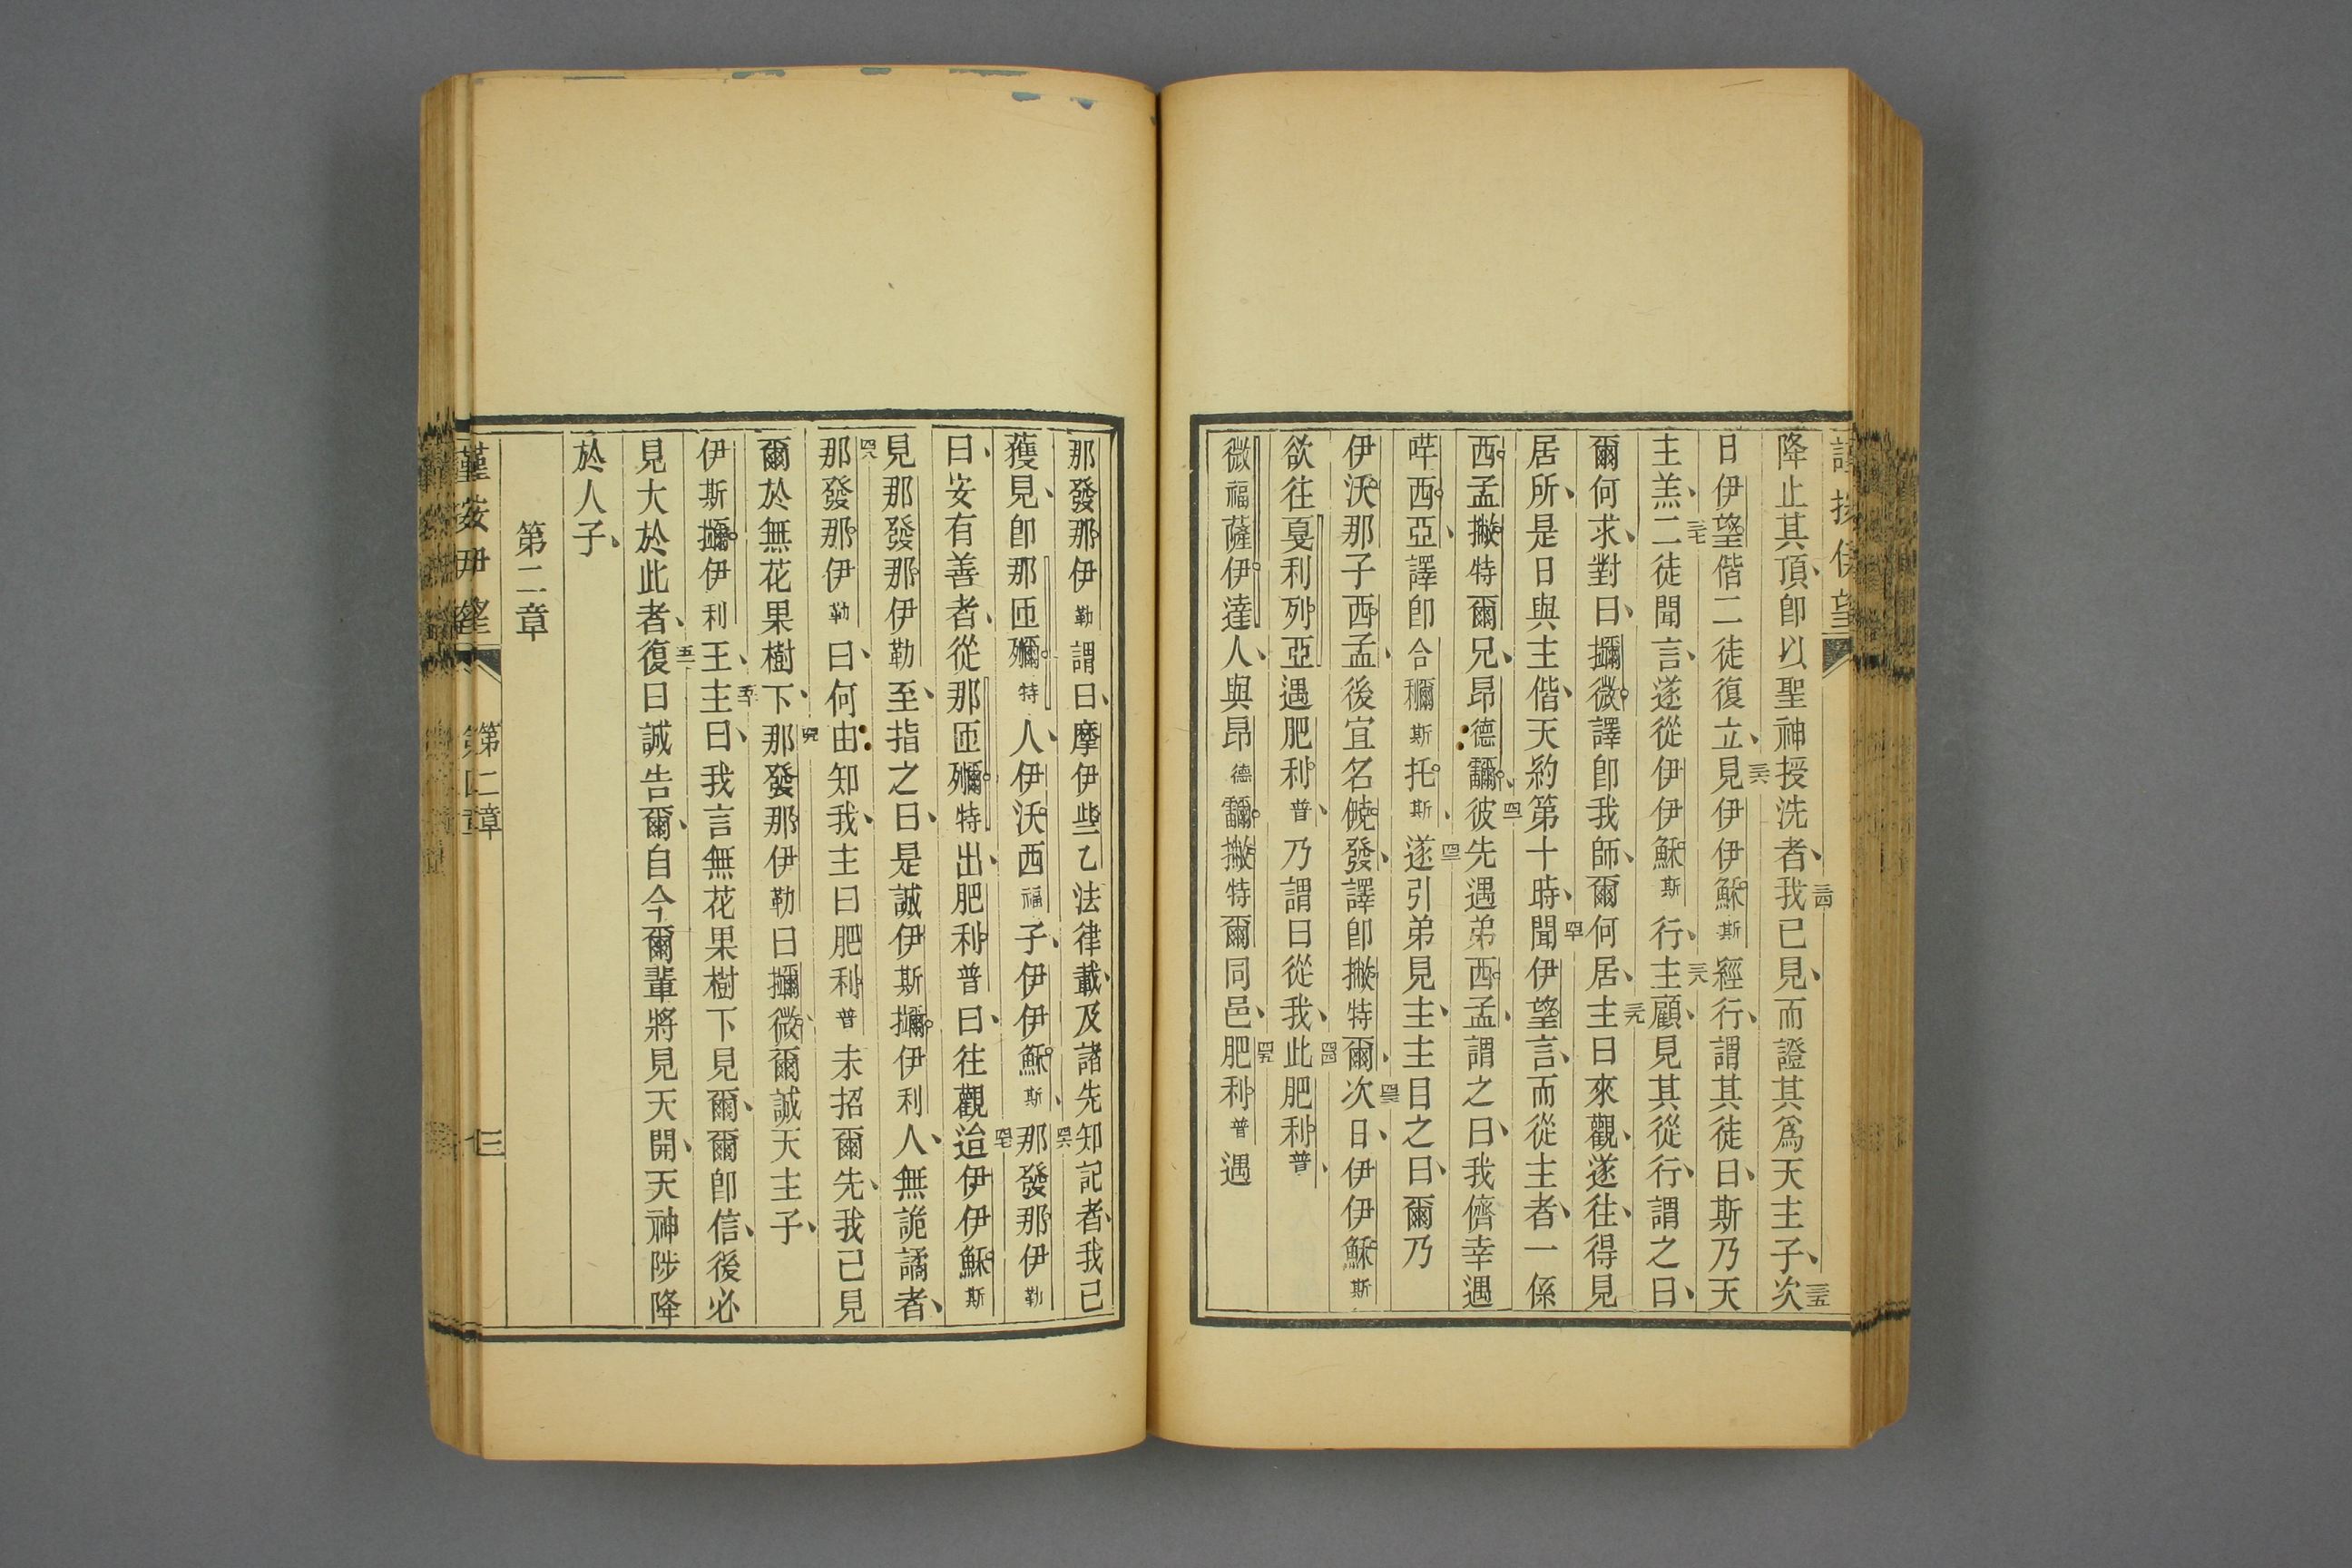 降止其頂、卽以聖神授洗者、三四我已見、而證其爲天主子、三五次
日伊望偕二徒復立、三六見伊伊穌斯經行、謂其徒曰、斯乃天
主羔、三七二徒聞言、遂從伊伊穌斯行、三八主顧、見其從行、謂之曰、
爾何求、對曰、㩴微、譯卽我師、爾何居、三九主曰來觀、遂往、得見
居所、是日與主偕、天約第十時、四十聞伊望言、而從主者、一係
西孟撇特爾兄、昂德、四一彼先遇弟西孟、謂之曰、我儕幸遇
西亞、譯卽合斯托斯、四二遂引弟見主、主目之曰、爾乃
伊沃那子西孟、後宜名發、譯卽撇特爾、四三次日、伊伊穌斯
欲往戛利列亞、遇肥利普、乃謂曰從我、四四此肥利普、
微福薩伊達人、與昂德撇特爾同邑、四五肥利普遇
那發那伊勒謂曰、摩伊些乙法律載、及諸先知記者、我已
獲見、卽那匝特人、伊沃西福子、伊伊穌斯、四六那發那伊勒
曰、安有善者、從那匝特出、肥利普曰、往觀、四七迨伊伊穌斯
見那發那伊勒至、指之曰、是誠伊斯㩴伊利人、無詭譎者、
四八那發那伊勒曰、何由知我、主曰肥利普未招爾先、我已見
爾於無花果樹下、四九那發那伊勒曰㩴微、爾誠天主子、
伊斯㩴伊利王、五十主曰、我言無花果樹下見爾、爾卽信、後必
見大於此者、五一復曰誠告爾、自今爾輩將見天開、天神陟降
於人子、
第二章
第二章